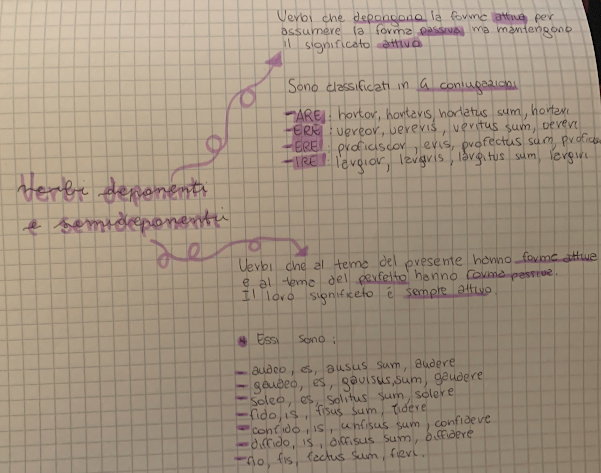 Verbi che depongono la forma attiva per
assumere la forma passiva ma mantengono
il significato attivo
Sono classificati in 4 coniugazioni
-ARE: hortor, hortaris, hortatus sum, hortari
-ERE: vereor, vereris, veritus sum, vereri
-ERE: proficiscor, eris, profectus sum, profici
-IRE: largior, largiris, largitus sum, largiri
Verbi deponenti
e semideponenti
Verbi che al tema del presente hanno forma attiva
e al tema del perfetto hanno forma passiva.
Il loro significato è sempre attivo.
Essi sono:
- audeo, es, ausus sum, audere
- gaudeo, es, gavisus sum, gaudere
- soleo, es, solitus sum, solere
- fido, is, fisus sum, fidere
- confido, is, confisus sum, confidere
- diffido, is, diffisus sum, diffidere
- fio, fis, factus sum, fieri.